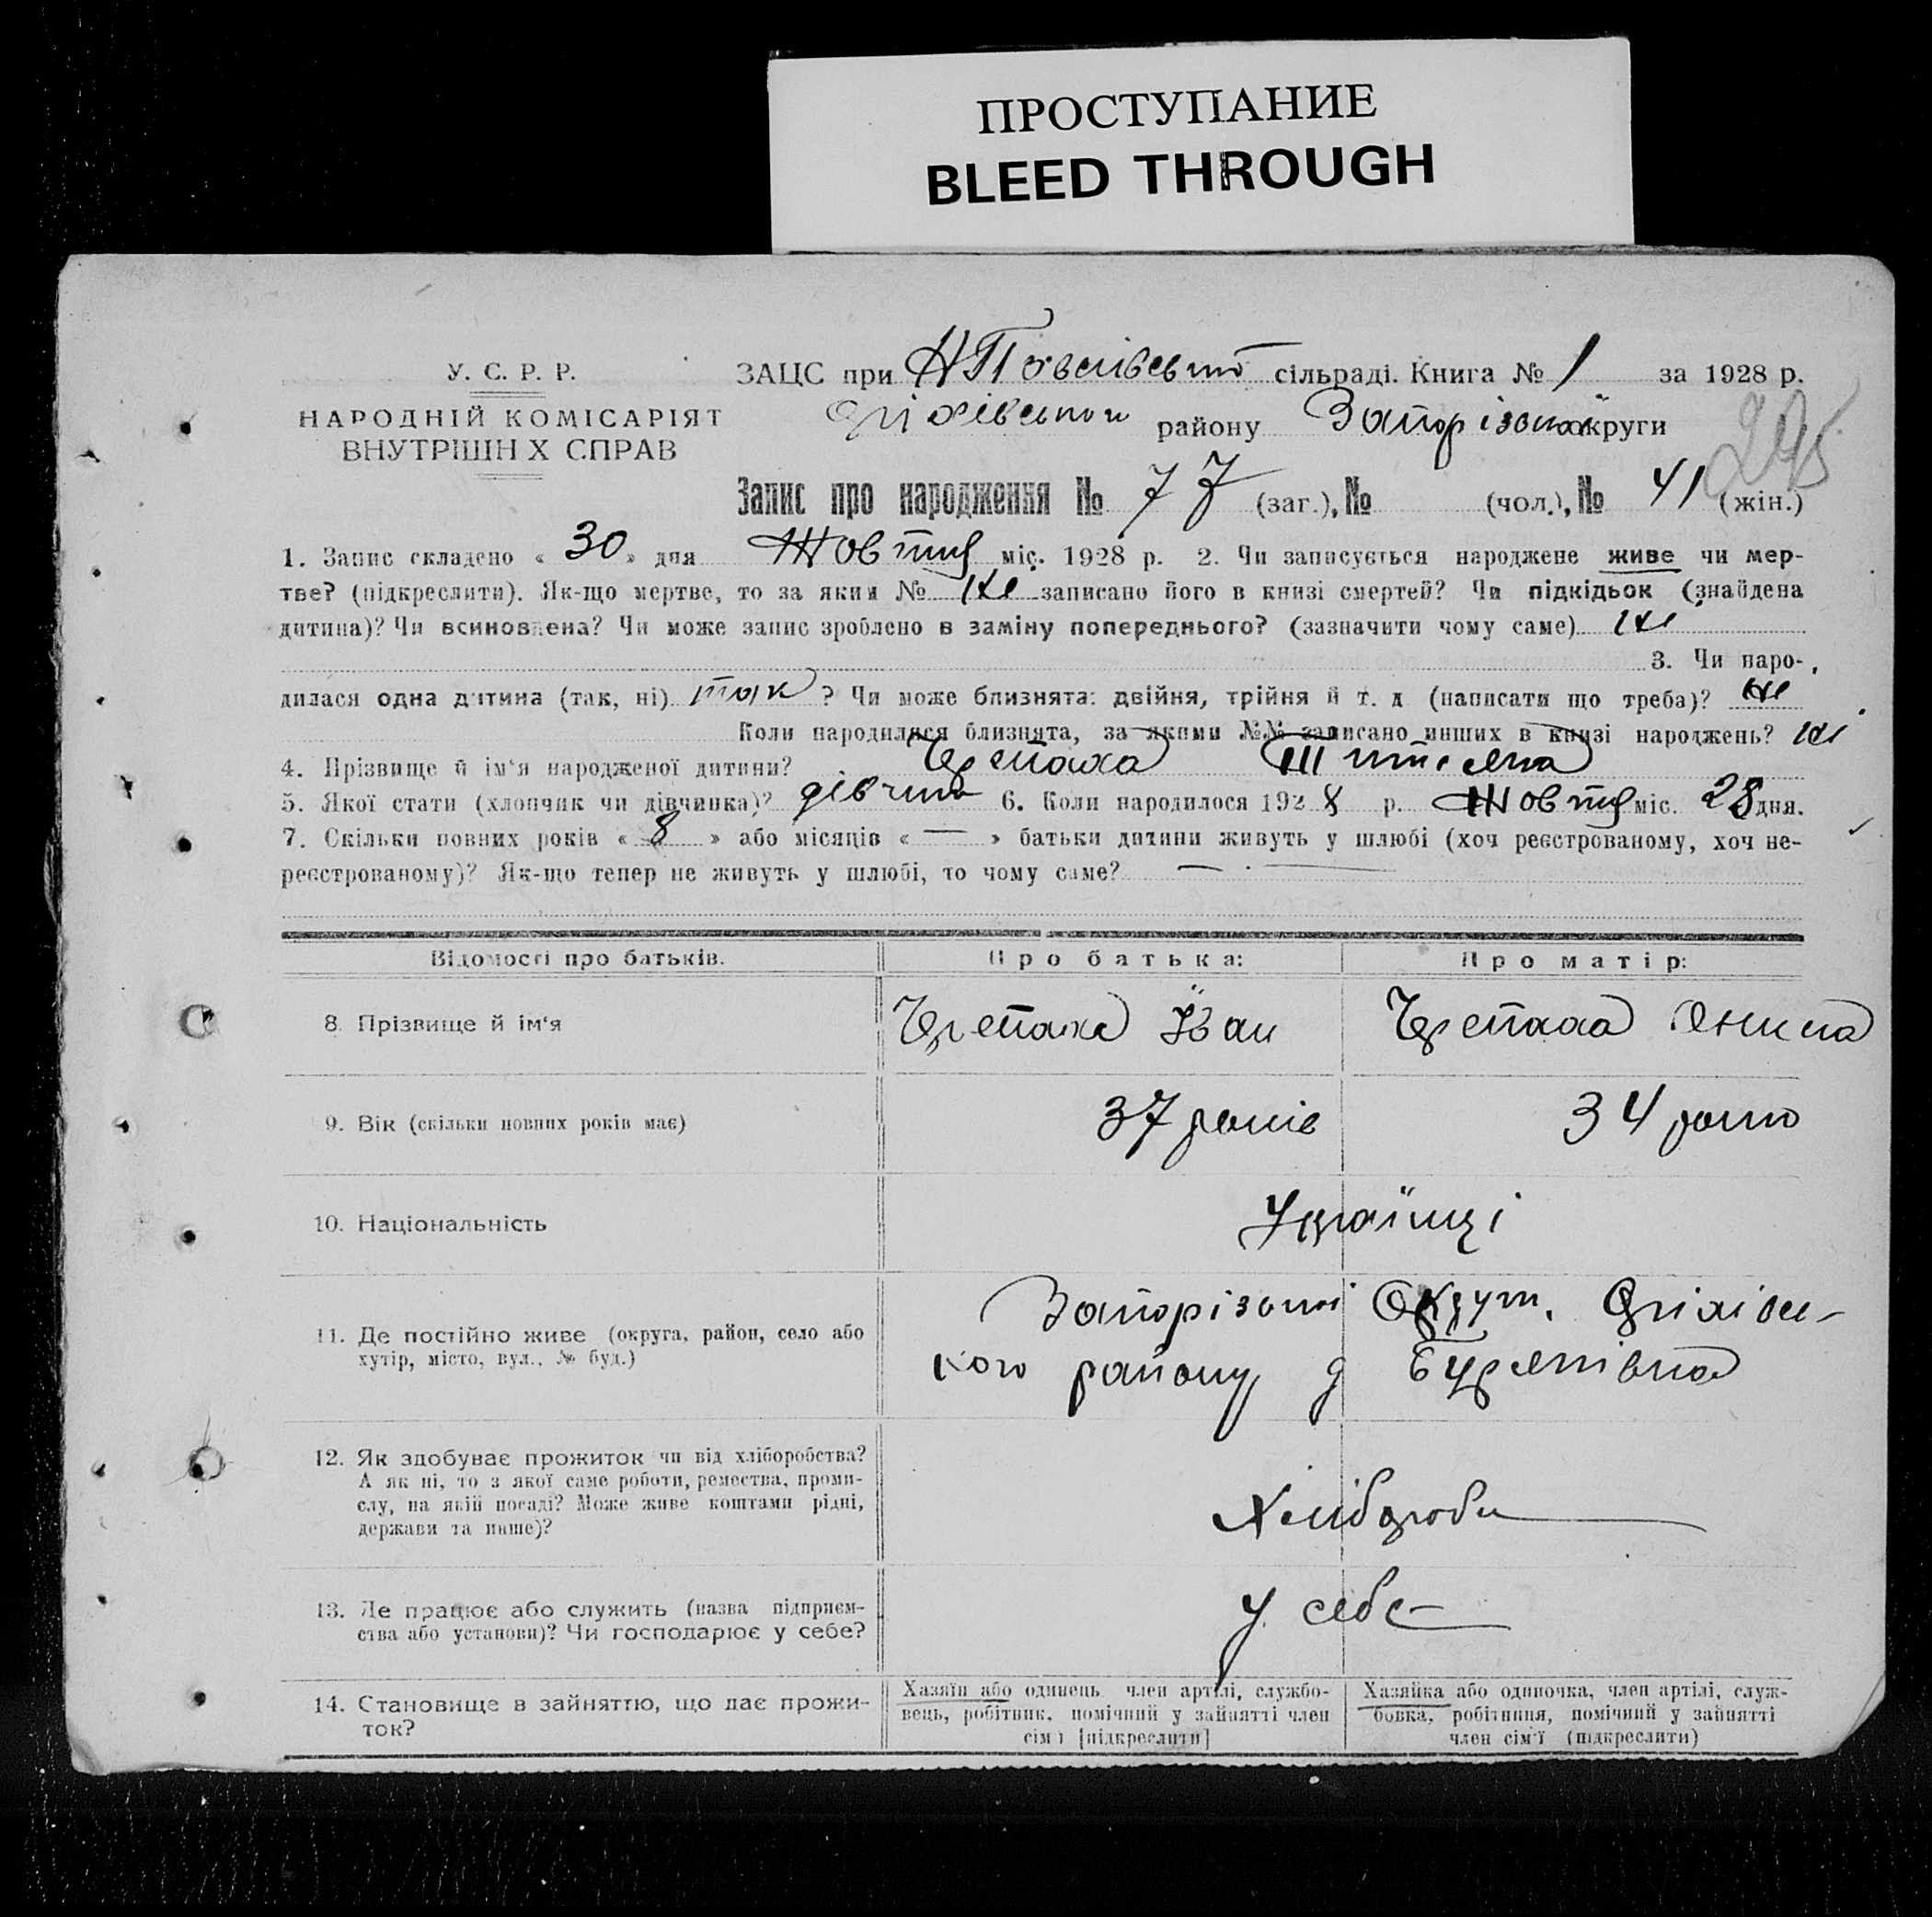 ПРОСТУПАНИЕ
BLEED THROUGH
У. С. Р. Р.
НАРОДНІЙ КОМІСАРІЯТ
ВНУТРІШН Х СПРАВ
ЗАЦС при сільраді. Книга № 1 за 1928 р.
району Запорізької округи
245
Запис про народження № 77 (заг.), № (чол.), № 41 (жін.)
1. Запис складено « 30 » дня Жовтня міс. 1928 р. 2. Чи записується народжене живе чи мер-
тве? (підкреслити). Як-що мертве, то за яким № ні записано його в книзі смертей? Чи підкідьок (знайдена
дитина)? Чи всиновлена? Чи може запис зроблено в заміну попереднього? (зазначити чому саме) ні
3. Чи наро-
дилася одна дитина (так, ні) так ? Чи може близнята: двійня, трійня й т. д (написати що треба)? ні
Коли народилися близнята, за якими №№ записано инших в книзі народжень? ні
4. Прізвище й ім‘я народженої дитини? Черепаха
5. Якої стати (хлопчик чи дівчинка)? дівчина 6. Коли народилося 1928 р. Жовтня міс. 28 дня.
7. Скільки повних років « 8 » або місяців « — » батьки дитини живуть у шлюбі (хоч реєстрованому, хоч не-
реєстрованому)? Як-що тепер не живуть у шлюбі, то чому саме? —
Відомості про батьків.
Про батька:
Про матір:
8. Прізвище й ім‘я
Черепаха Іван
Черепаха
9. Вік (скільки повних років має)
37 років
34 роки
10. Національність
Українці
11. Де постійно живе (округа, район, село або
хутір, місто, вул., № буд.)
Запорізької Округи, Оріхівсь-
кого району
12. Як здобуває прожиток чи від хліборобства?
А як ні, то з якої саме роботи, ремества, проми-
слу, на якій посаді? Може живе коштами рідні,
держави та инше)?
Хлібороби
13. Де працює або служить (назва підприєм-
ства або установи)? Чи господарює у себе?
у себе
14. Становище в зайняттю, що дає прожи-
ток?
Хазяїн або одинець член артілі, службо-
вець, робітник, помічний у зайнятті член
сім ї [підкреслити]
Хазяйка або одиночка, член артілі, служ-
бовка, робітниця, помічний у зайнятті
член сім‘ї (підкреслити)